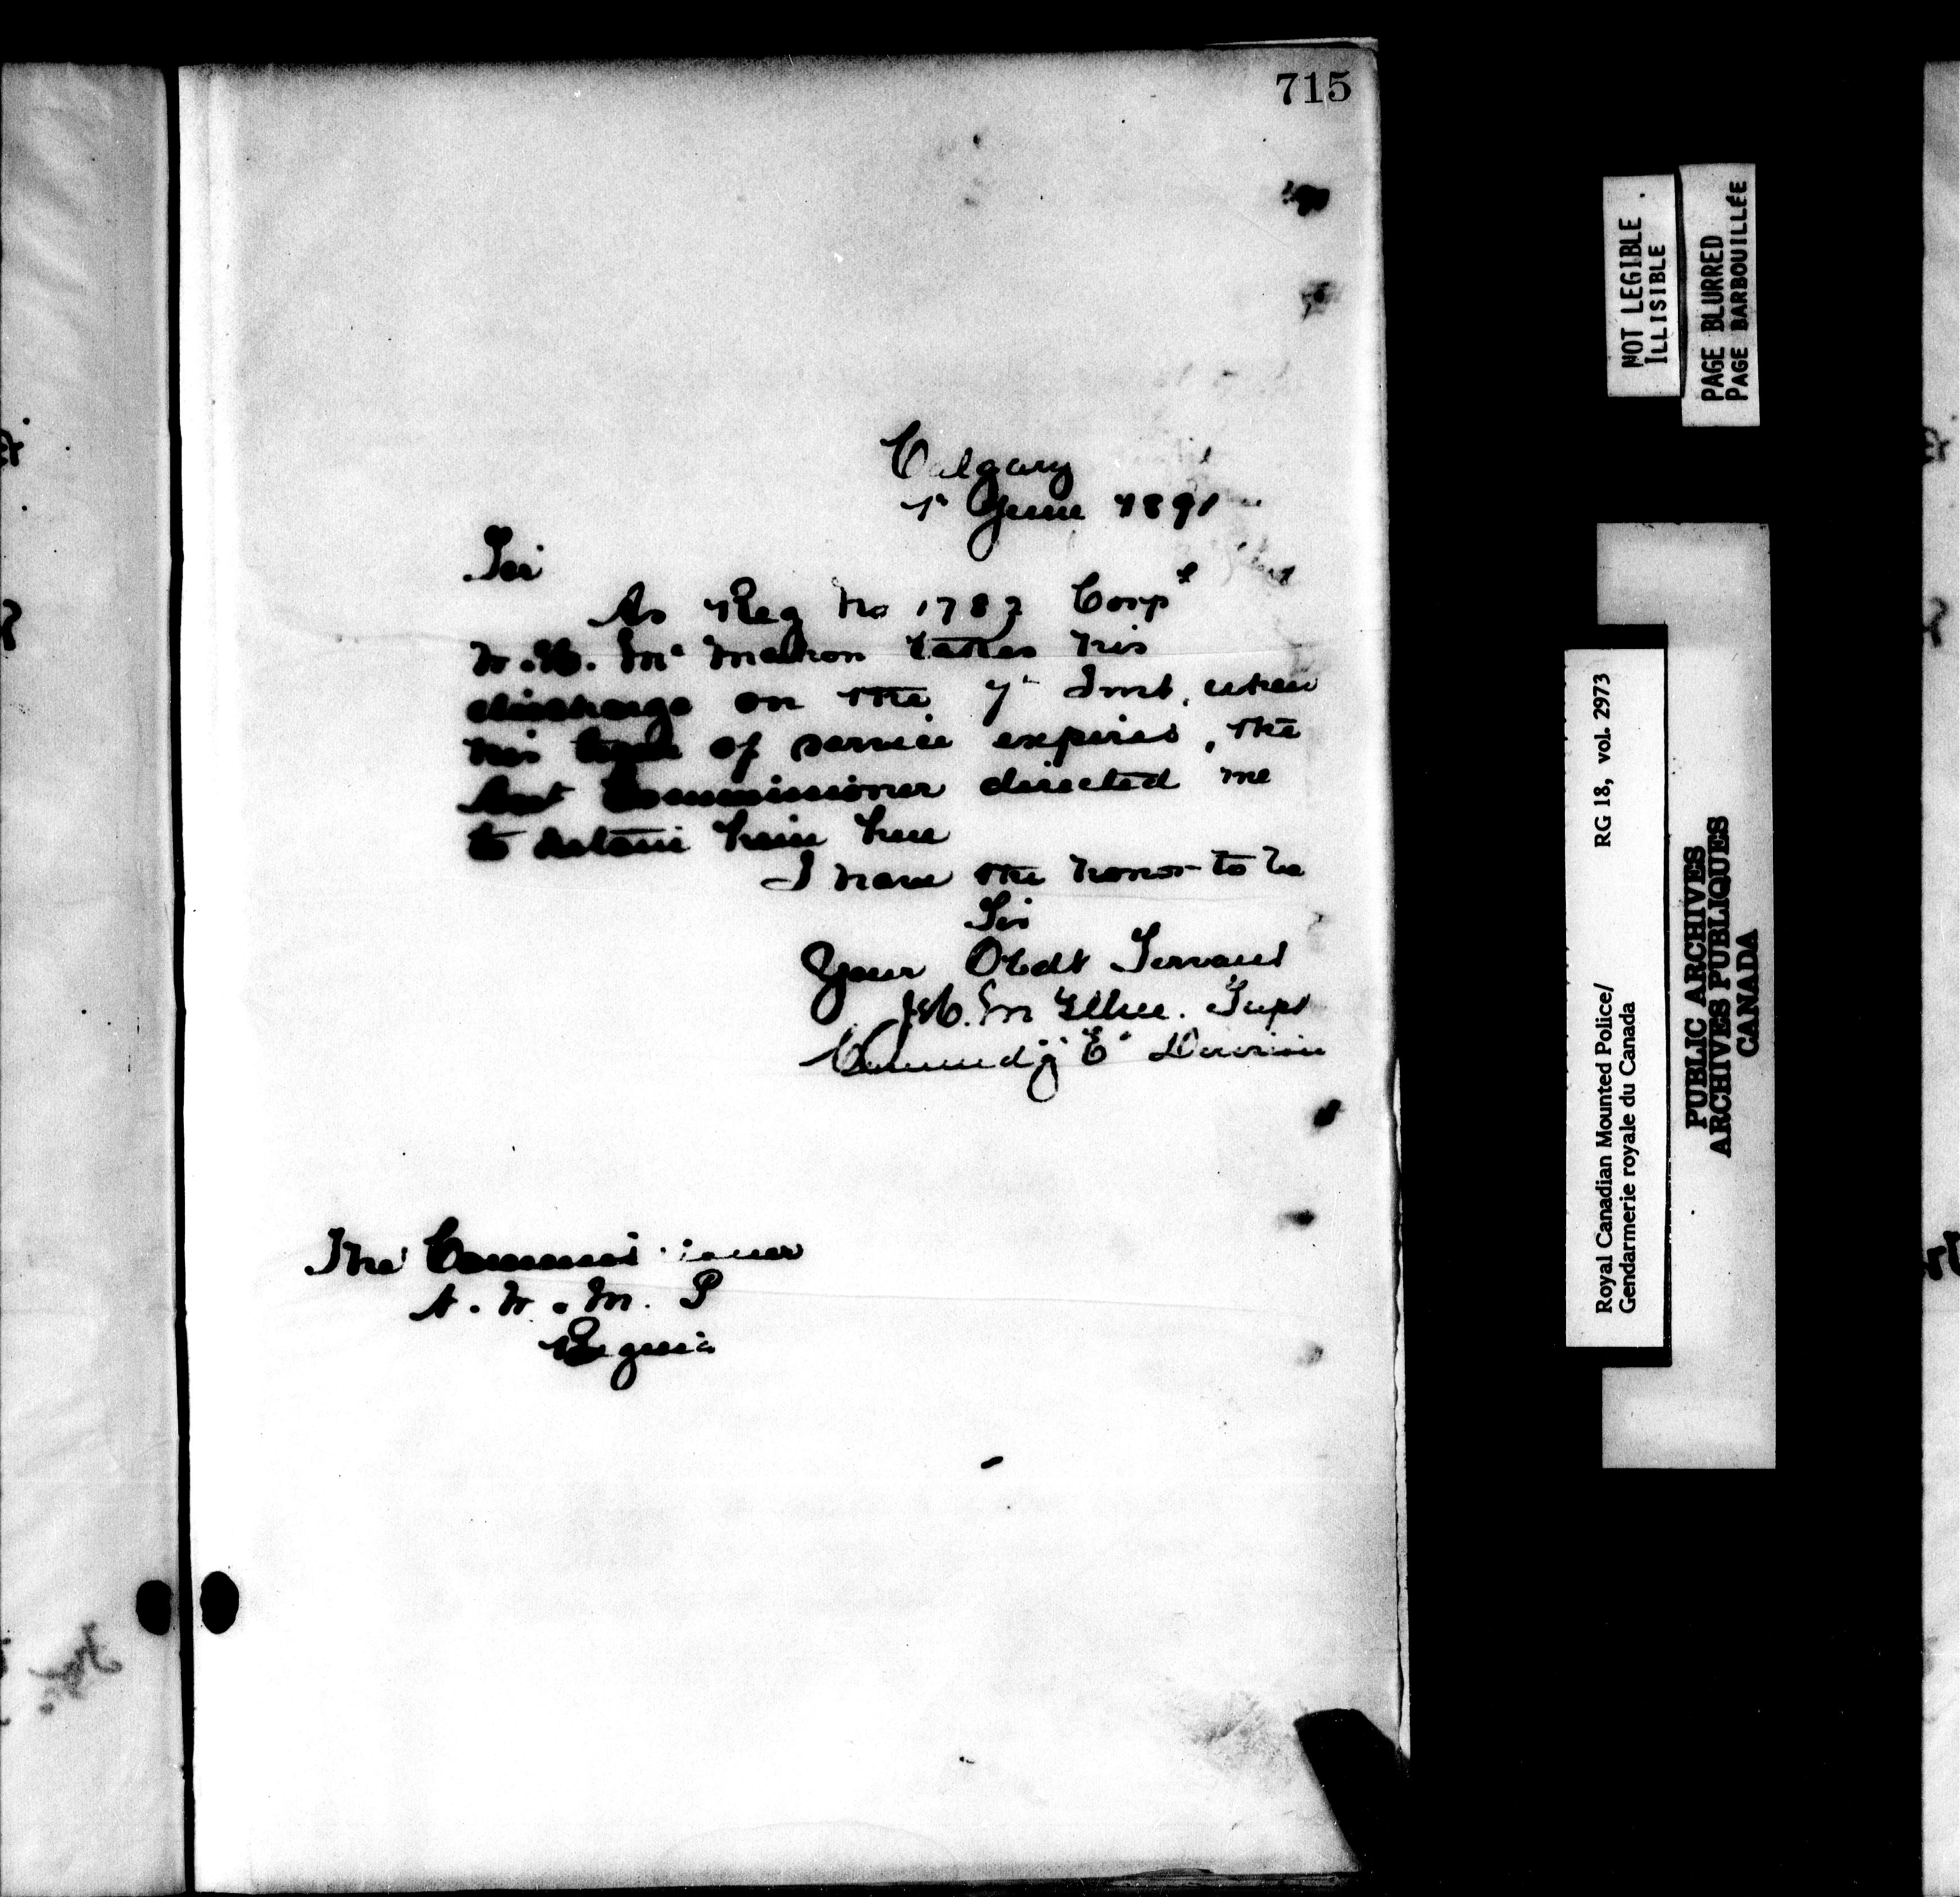 715
Calgary
1st June 1891
Sir
As Reg No 1782 Corpl
W.H. McMahon takes his
discharge on the 7th Inst, when
his term of service expires, the
Asst Commissioner directed me
to detain him here
I have the honor to be
Sir
Your Obdt Servant
Supt
Commdg "E" Division
The Commissioner
N.W.M.P
Regina
NOT LEGIBLE
ILLISIBLE
PAGE BLURRED
PAGE BARBOUILLÉE
Royal Canadian Mounted Police/ RG 18, vol. 2973
Gendarmerie royale du Canada
PUBLIC ARCHIVES
ARCHIVES PUBLIQUES
CANADA